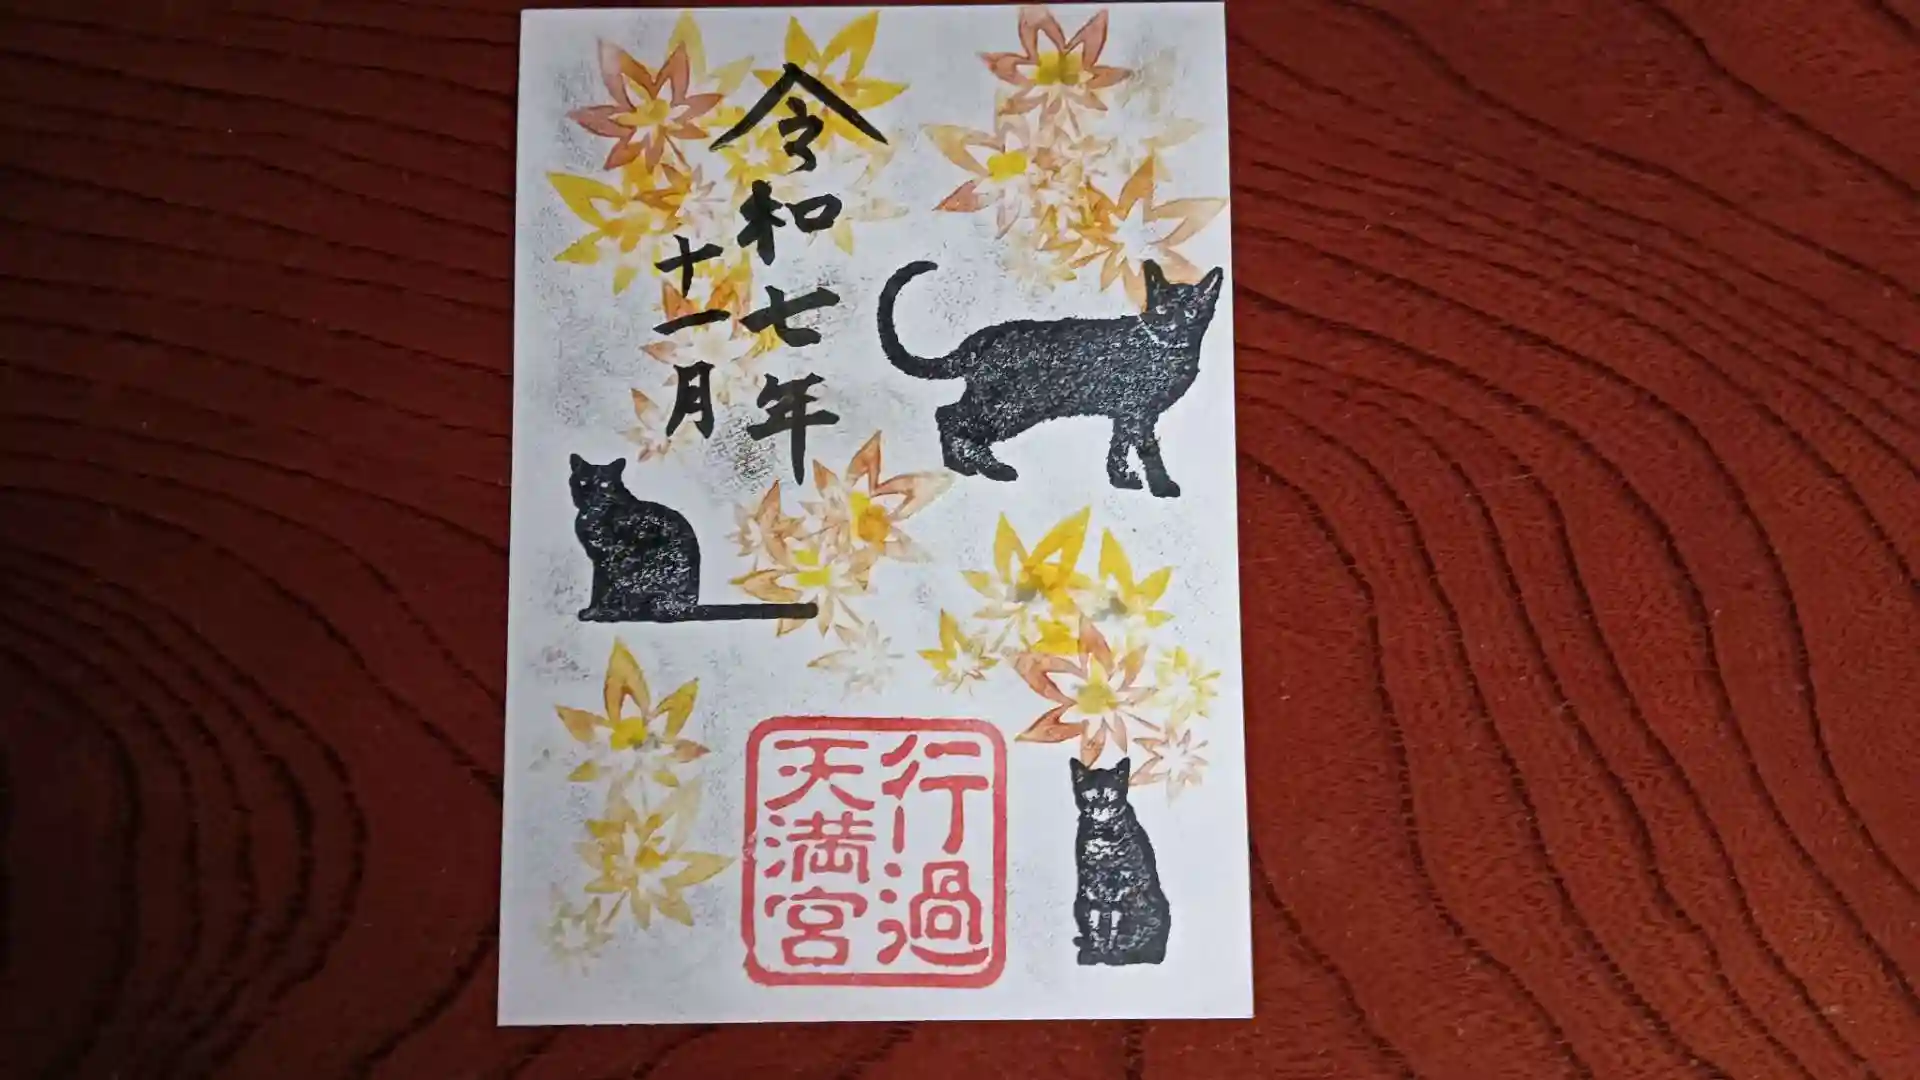 令和七年
十一月
行過
天満宮